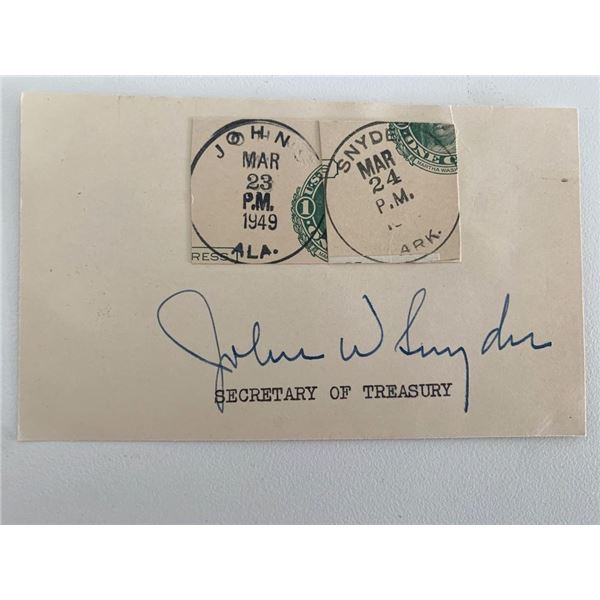 JOHNS
MAR
23
P.M.
1949
ALA.
RESS
U.S.
1
SNYDE
MAR
24
P.M.
ARK.
ONE C
MARTHA WASH
John W Snyder
SECRETARY OF TREASURY